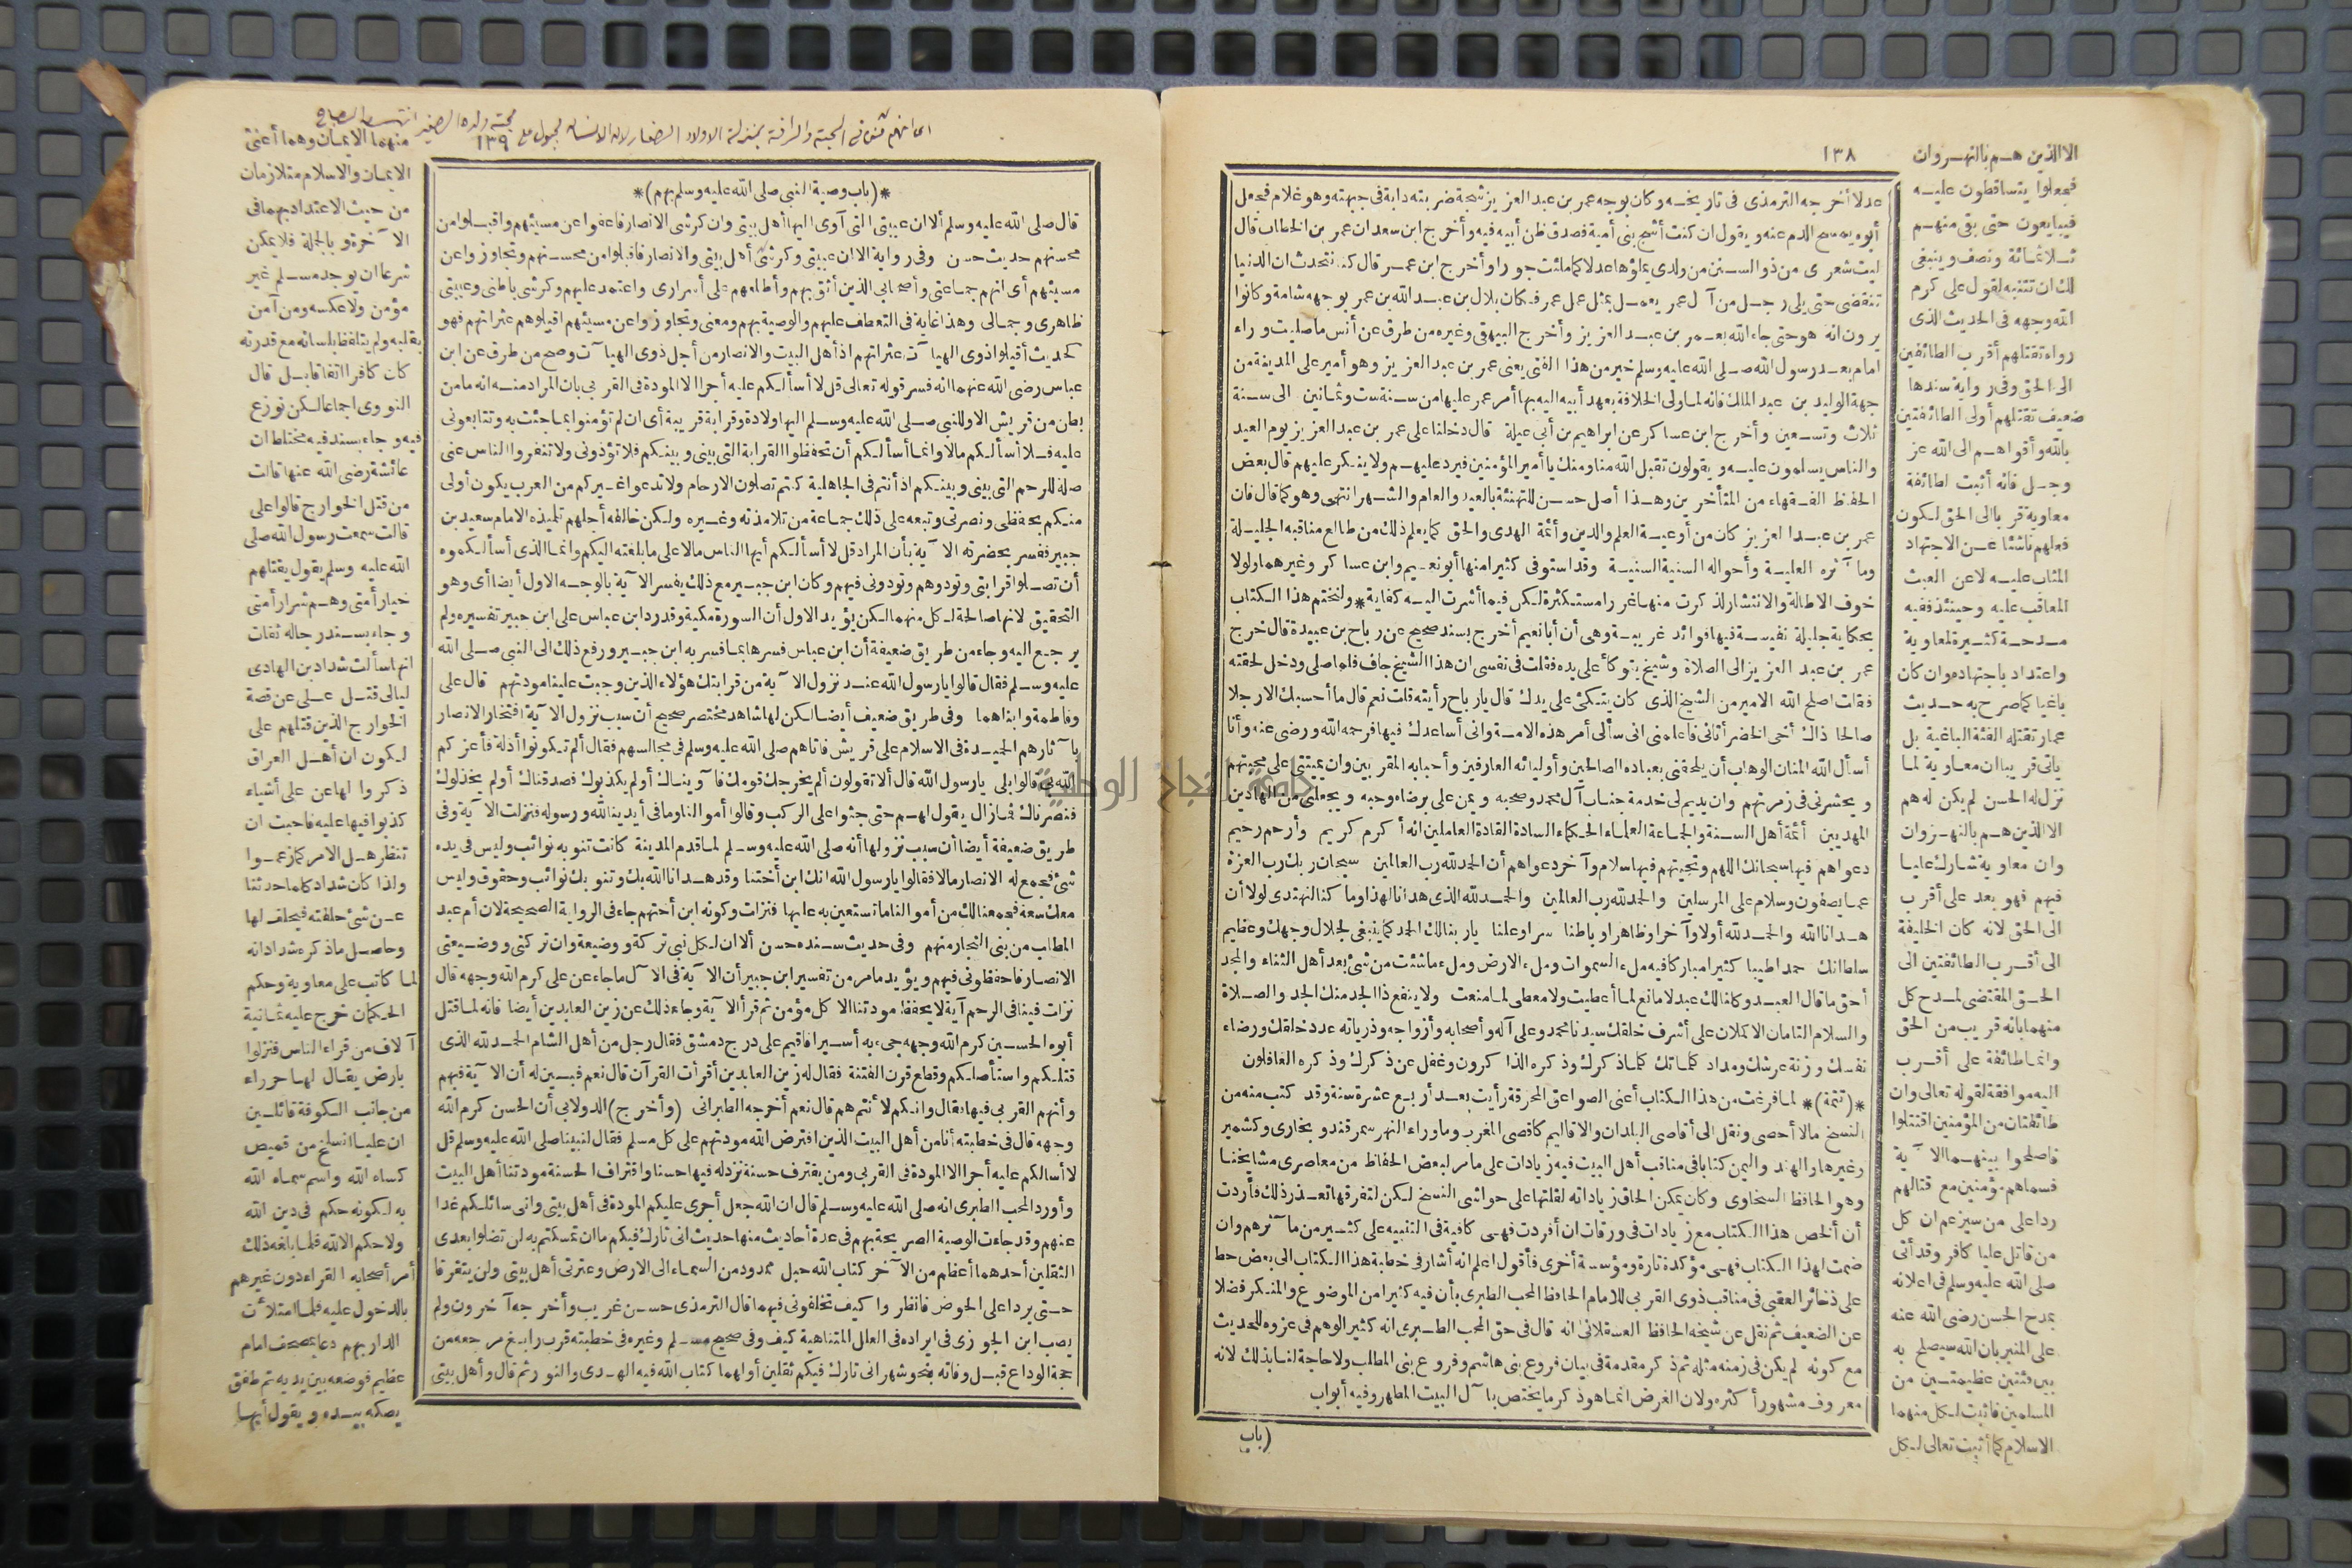 ١٣٨
عدلا أخرجه الترمذى فى تاريخه وكان بوجه عمر بن عبد العزيز شجة ضربته دابة فى جبهته وهو غلام فجعل
أبوه يمسح الدم عنه ويقول ان كنت أشج بنى أمية فصدق ظن أبيه فيه وأخرج ابن سعد ان عمر بن الخطاب قال
ليت شعرى من ذو السنن من ولدى يملؤها عدلا كما ملئت جورا وأخرج ابن عمر قال كنا نتحدث ان الدنيا
تنقضى حتى يلى رجل من آل عمر يعمل بمثل عمل عمر فكان بلال بن عبد الله بن عمر بوجهه شامة وكانوا
يرون انه هو حتى جاء الله بعمر بن عبد العزيز وأخرج البيهقى وغيره من طرق عن أنس ما صليت وراء
امام بعد رسول الله صلى الله عليه وسلم خير من هذا الفتى يعنى عمر بن عبد العزيز وهو أمير على المدينة من
جهة الوليد بن عبد الملك فانه لما ولى الخلافة بعهد أبيه اليه بها أمر عمر عليها من سنة ست وثمانين الى سنة
ثلاث وتسعين وأخرج ابن عساكر عن ابراهيم بن أبى عبلة قال دخلنا على عمر بن عبد العزيز يوم العيد
والناس يسلمون عليه ويقولون تقبل الله منا ومنك يا أمير المؤمنين فيرد عليهم ولا ينكر عليهم قال بعض
الحفاظ الفقهاء من المتأخرين وهذا أصل حسن للتهنئة بالعيد والعام والشهر انتهى وهو كما قال فان
عمر بن عبد العزيز كان من أوعية العلم والدين وأئمة الهدى والحق كما يعلم ذلك من طالع مناقبه الجليلة
وما آثره العلية وأحواله السنية السنية وقد استوفى كثيرا منها أبو نعيم وابن عساكر وغيرهما ولولا
خوف الاطالة والانتشار لذكرت منها غررا مستكثرة لكن فيما أشرت اليه كفاية * ولنختم هذا الكتاب
بحكاية جليلة نفيسة فيها فوائد غريبة وهى أن أبا نعيم أخرج بسند صحيح عن رباح بن عبيدة قال خرج
عمر بن عبد العزيز الى الصلاة وشيخ يتوكأ على يده فقلت فى نفسى ان هذا الشيخ جاف فلما صلى ودخل لحقته
فقلت أصلح الله الامير من الشيخ الذى كان يتكئ على يدك قال يا رباح رأيته قلت نعم قال ما أحسبك الا رجلا
صالحا ذاك أخى الخضر أتانى فاعلمنى انى سألى أمر هذه الامة وانى أساعدك فيها فرحمه الله ورضى عنه وأنا
أسأل الله المنان الوهاب أن يلحقنى بعباده الصالحين وأوليائه العارفين وأحبابه المقربين وان يميتنى على محبتهم
ويحشرنى فى زمرتهم وان يديم لى خدمة جناب آل محمد وصحبه ويمن على برضاه وحبه ويجعلنى من الهادين
المهديين أئمة أهل السنة والجماعة العلماء الحكماء السادة القادة العاملين انه أكرم كريم وأرحم رحيم
دعواهم فيها سبحانك اللهم وتحيتهم فيها سلام وآخر دعواهم أن الحمد لله رب العالمين سبحان ربك رب العزة
عما يصفون وسلام على المرسلين والحمد لله رب العالمين والحمد لله الذى هدانا لهذا وما كنا لنهتدى لولا أن
هدانا الله والحمد لله أولا وآخرا وظاهرا وباطنا سرا وعلنا يا ربنا لك الحمد كما ينبغى لجلال وجهك وعظيم
سلطانك حمدا طيبا كثيرا مباركا فيه ملء السموات وملء الارض وملء ما شئت من شئ بعد أهل الثناء والمجد
أحق ما قال العبد وكلنا لك عبد لا مانع لما أعطيت ولا معطى لما منعت ولا ينفع ذا الجد منك الجد والصلاة
والسلام التامان الاكملان على أشرف خلقك سيدنا محمد وعلى آله وأصحابه وأزواجه وذرياته عدد خلقك ورضاء
نفسك وزنة عرشك ومداد كلماتك كلما ذكرك وذكره الذاكرون وغفل عن ذكرك وذكره الغافلون
*(تتمة)* لما فرغت من هذا الكتاب أعنى الصواعق المحرقة رأيت بعد أربع عشرة سنة وقد كتب منه من
النسخ مالا أحصى ونقل الى أقاصى البلدان والاقاليم كاقصى المغرب وما وراء النهر سمرقند وبخارى وكشمير
وغيرها والهند واليمن كتابا فى مناقب أهل البيت فيه زيادات على ما مر لبعض الحفاظ من معاصرى مشايخنا
وهو الحافظ السخاوى وكان يمكن الحاق زياداته لقلتها على حواشى النسخ لكن لتفرقها تعذر ذلك فأردت
أن ألخص هذا الكتاب مع زيادات فى ورقات ان أفردت فهى كافية فى التنبيه على كثير من مآثرهم وان
ضمت لهذا الكتاب فهى مؤكدة تارة ومؤسسة أخرى فأقول اعلم انه أشار فى خطبة هذا الكتاب الى بعض حط
على ذخائر العقبى فى مناقب ذوى القربى للامام الحافظ المحب الطبرى بأن فيه كثيرا من الموضوع والمنكر فضلا
عن الضعيف ثم نقل عن شيخه الحافظ العسقلانى انه قال فى حق المحب الطبرى انه كثير الوهم فى عزوه للحديث
مع كونه لم يكن فى زمنه مثله ثم ذكر مقدمة فى بيان فروع بنى هاشم وفروع بنى المطلب ولا حاجة لنا بذلك لانه
معروف مشهور أكثره ولان الغرض انما هو ذكر ما يختص بآل البيت المطهر وفيه أبواب
(باب
الا الذين هم بالنهروان
فجعلوا يتساقطون عليه
فيبايعون حتى بقى منهم
ثلاثمائة ونصف وينبغى
لك ان تتنبه لقول على كرم
الله وجهه فى الحديث الذى
رواه تقتلهم أقرب الطائفتين
الى الحق وفى رواية سندها
ضعيف تقتلهم أولى الطائفتين
بالله وأقواهم الى الله عز
وجل فانه أثبت لطائفة
معاوية قربا الى الحق لكون
فعلهم ناشئا عن الاجتهاد
المثاب عليه لا عن العبث
المعاقب عليه وحينئذ ففيه
مدحة كثيرة لمعاوية
واعتداد باجتهاده وان كان
باغيا كما صرح به حديث
عمار تقتله الفئة الباغية بل
يأتى قريبا ان معاوية لما
نزل له الحسن لم يكن له هم
الا الذين هم بالنهروان
وان معاوية شارك عليا
فيهم فهو بعد على أقرب
الى الحق لانه كان الخليفة
الى أقرب الطائفتين الى
الحق المقتضى لمدح كل
منهما بانه قريب من الحق
وانما طائفة على أقرب
اليه موافقة لقوله تعالى وان
طائفتان من المؤمنين اقتتلوا
فاصلحوا بينهما الآية
فسماهم مؤمنين مع قتالهم
ردا على من سيزعم ان كل
من قاتل عليا كافر وقد أثنى
صلى الله عليه وسلم فى اعلانه
بمدح الحسن رضى الله عنه
على المنبر بان الله سيصلح به
بين فئتين عظيمتين من
المسلمين فاثبت لكل منهما
الاسلام كما أثبت تعالى لكل
١٣٩
*(باب وصية النبى صلى الله عليه وسلم بهم)*
قال صلى الله عليه وسلم ألا ان عيبتى التى آوى اليها أهل بيتى وان كرشى الانصار فاعفوا عن مسيئهم واقبلوا من
محسنهم حديث حسن وفى رواية الا ان عيبتى وكرشى أهل بيتى والانصار فاقبلوا من محسنهم وتجاوزوا عن
مسيئهم أى انهم جماعتى وأصحابى الذين أثق بهم وأطلعهم على أسرارى واعتمد عليهم وكرشى باطنى وعيبتى
ظاهرى وجمالى وهذا غاية فى التعطف عليهم والوصية بهم ومعنى وتجاوزوا عن مسيئهم اقيلوهم عثراتهم فهو
كحديث أقيلوا ذوى الهيآت عثراتهم اذ أهل البيت والانصار من أجل ذوى الهيآت وصح من طرق عن ابن
عباس رضى الله عنهما انه فسر قوله تعالى قل لا أسألكم عليه أجرا الا المودة فى القربى بان المراد منه انه ما من
بطن من قريش الا وللنبى صلى الله عليه وسلم اليها ولادة وقرابة قريبة أى ان لم تؤمنوا بما جئت به وتتابعونى
عليه فلا أسألكم مالا وانما أسألكم أن تحفظوا القرابة التى بينى وبينكم فلا تؤذونى ولا تنفروا الناس عنى
صلة للرحم التى بينى وبينكم اذ أنتم فى الجاهلية كنتم تصلون الارحام ولا تدعوا غيركم من العرب يكون أولى
منكم بحفظى ونصرتى وتبعه على ذلك جماعة من تلامذته وغيره ولكن خالفه أجلهم تلميذه الامام سعيد بن
جبير ففسر بحضرته الآية بأن المراد قل لا أسألكم أيها الناس مالا على ما بلغته اليكم وانما الذى أسألكموه
أن تصلوا قرابتى وتودوهم وتودونى فيهم وكان ابن جبير مع ذلك يفسر الآية بالوجه الاول أيضا أى وهو
التحقيق لانها صالحة لكل منهما لكن يؤيد الاول أن السورة مكية وقد رد ابن عباس على ابن جبير تفسيره ولم
يرجع اليه وجاء من طريق ضعيفة أن ابن عباس فسرها بما فسر به ابن جبير ورفع ذلك الى النبى صلى الله
عليه وسلم فقال قالوا يا رسول الله عند نزول الآية من قرابتك هؤلاء الذين وجبت علينا مودتهم قال على
وفاطمة وابناهما وفى طريق ضعيف أيضا لكن لها شاهد مختصر صحيح أن سبب نزول الآية افتخار الانصار
بآثارهم الحميدة فى الاسلام على قريش فاتاهم صلى الله عليه وسلم فى مجالسهم فقال ألم تكونوا أذلة فأعزكم
الله بى قالوا بلى يا رسول الله قال ألا تقولون ألم يخرجك قومك فآويناك أولم يكذبوك فصدقناك أولم يخذلوك
فنصرناك فما زال يقول لهم حتى جثوا على الركب وقالوا أموالنا وما فى أيدينا لله ورسوله فنزلت الآية وفى
طريق ضعيفة أيضا أن سبب نزولها أنه صلى الله عليه وسلم لما قدم المدينة كانت تنوبه نوائب وليس فى يده
شئ فجمع له الانصار مالا فقالوا يا رسول الله انك ابن أختنا وقد هدانا الله بك وتنوبك نوائب وحقوق وليس
معك سعة فجمعنا لك من أموالنا ما تستعين به عليها فنزلت وكونه ابن أختهم جاء فى الرواية الصحيحة لان أم عبد
المطلب من بنى النجار منهم وفى حديث سنده حسن ألا ان لكل نبى تركة ووضيعة وان تركتى ووضيعتى
الانصار فاحفظونى فيهم ويؤيد ما مر من تفسير ابن جبير أن الآية فى الآل ما جاء عن على كرم الله وجهه قال
نزلت فينا فى الرحم آية لا يحفظ مودتنا الا كل مؤمن ثم قرأ الآية وجاء ذلك عن زين العابدين أيضا فانه لما قتل
أبوه الحسين كرم الله وجهه جىء به أسيرا فاقيم على درج دمشق فقال رجل من أهل الشام الحمد لله الذى
قتلكم واستأصلكم وقطع قرن الفتنة فقال له زين العابدين أقرأت القرآن قال نعم فبين له أن الآية فيهم
وأنهم القربى فيها فقال وانكم لأنتم هم قال نعم أخرجه الطبرانى (وأخرج) الدولابى أن الحسن كرم الله
وجهه قال فى خطبته أنا من أهل البيت الذين افترض الله مودتهم على كل مسلم فقال لنبينا صلى الله عليه وسلم قل
لا أسألكم عليه أجرا الا المودة فى القربى ومن يقترف حسنة نزد له فيها حسنا واقتراف الحسنة مودتنا أهل البيت
وأورد المحب الطبرى انه صلى الله عليه وسلم قال ان الله جعل أجرى عليكم المودة فى أهل بيتى وانى سائلكم غدا
عنهم وقد جاءت الوصية الصريحة بهم فى عدة أحاديث منها حديث انى تارك فيكم ما ان تمسكتم به لن تضلوا بعدى
الثقلين أحدهما أعظم من الآخر كتاب الله حبل ممدود من السماء الى الارض وعترتى أهل بيتى ولن يتفرقا
حتى يردا على الحوض فانظروا كيف تخلفونى فيهما قال الترمذى حسن غريب وأخرجه آخرون ولم
يصب ابن الجوزى فى ايراده فى العلل المتناهية كيف وفى صحيح مسلم وغيره فى خطبته قرب رابغ مرجعه من
حجة الوداع قبل وفاته بنحو شهر انى تارك فيكم ثقلين أولهما كتاب الله فيه الهدى والنور ثم قال وأهل بيتى
منهما الايمان وهما أعنى
الايمان والاسلام متلازمان
من حيث الاعتداد بهما فى
الآخرة وبالجملة فلا يمكن
شرعا ان يوجد مسلم غير
مؤمن ولا عكسه ومن آمن
بقلبه ولم يتلفظ بلسانه مع قدرته
كان كافرا اتفاقا بل قال
النووى اجماعا لكن نوزع
فيه وجاء بسند فيه مختلط ان
عائشة رضى الله عنها قالت
من قتل الخوارج قالوا على
قالت سمعت رسول الله صلى
الله عليه وسلم يقول يقتلهم
خيار أمتى وهم شرار أمتى
وجاء بسند رجاله ثقات
انها سألت شداد بن الهادى
ليالى قتل على عن قصة
الخوارج الذين قتلهم على
لكون ان أهل العراق
ذكروا لها عن على أشياء
كذبوا فيها عليه فاحبت ان
تنظر هل الامر كما زعموا
ولذا كان شداد كلما حدثها
عن شئ حلفته فيحلف لها
وحاصل ما ذكره شداد انه
لما كاتب على معاوية وحكم
الحكمان خرج عليه ثمانية
آلاف من قراء الناس فنزلوا
بارض يقال لها حروراء
من جانب الكوفة قائلين
ان عليا انسلخ من قميص
كساه الله واسم سماه الله
به لكونه حكم فى دين الله
ولا حكم الا لله فلما بلغه ذلك
أمر أصحابه القراء دون غيرهم
بالدخول عليه فلما امتلأت
الدار بهم دعا بمصحف امام
عظيم فوضعه بين يديه ثم طفق
يصكه بيده ويقول أيها